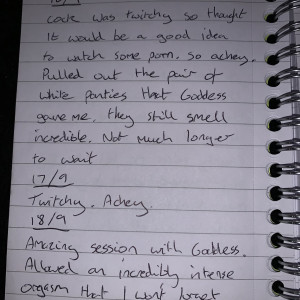 16/9
cock was twitchy so thought
it would be a good idea
to watch some porn. So achey.
Pulled out the pair of
white panties that Goddess
gave me, they still smell
incredible. Not much longer
to wait
17/9
Twitchy. Achey.
18/9
Amazing session with Goddess.
Allowed an incredibly intense
orgasm that I wont forget